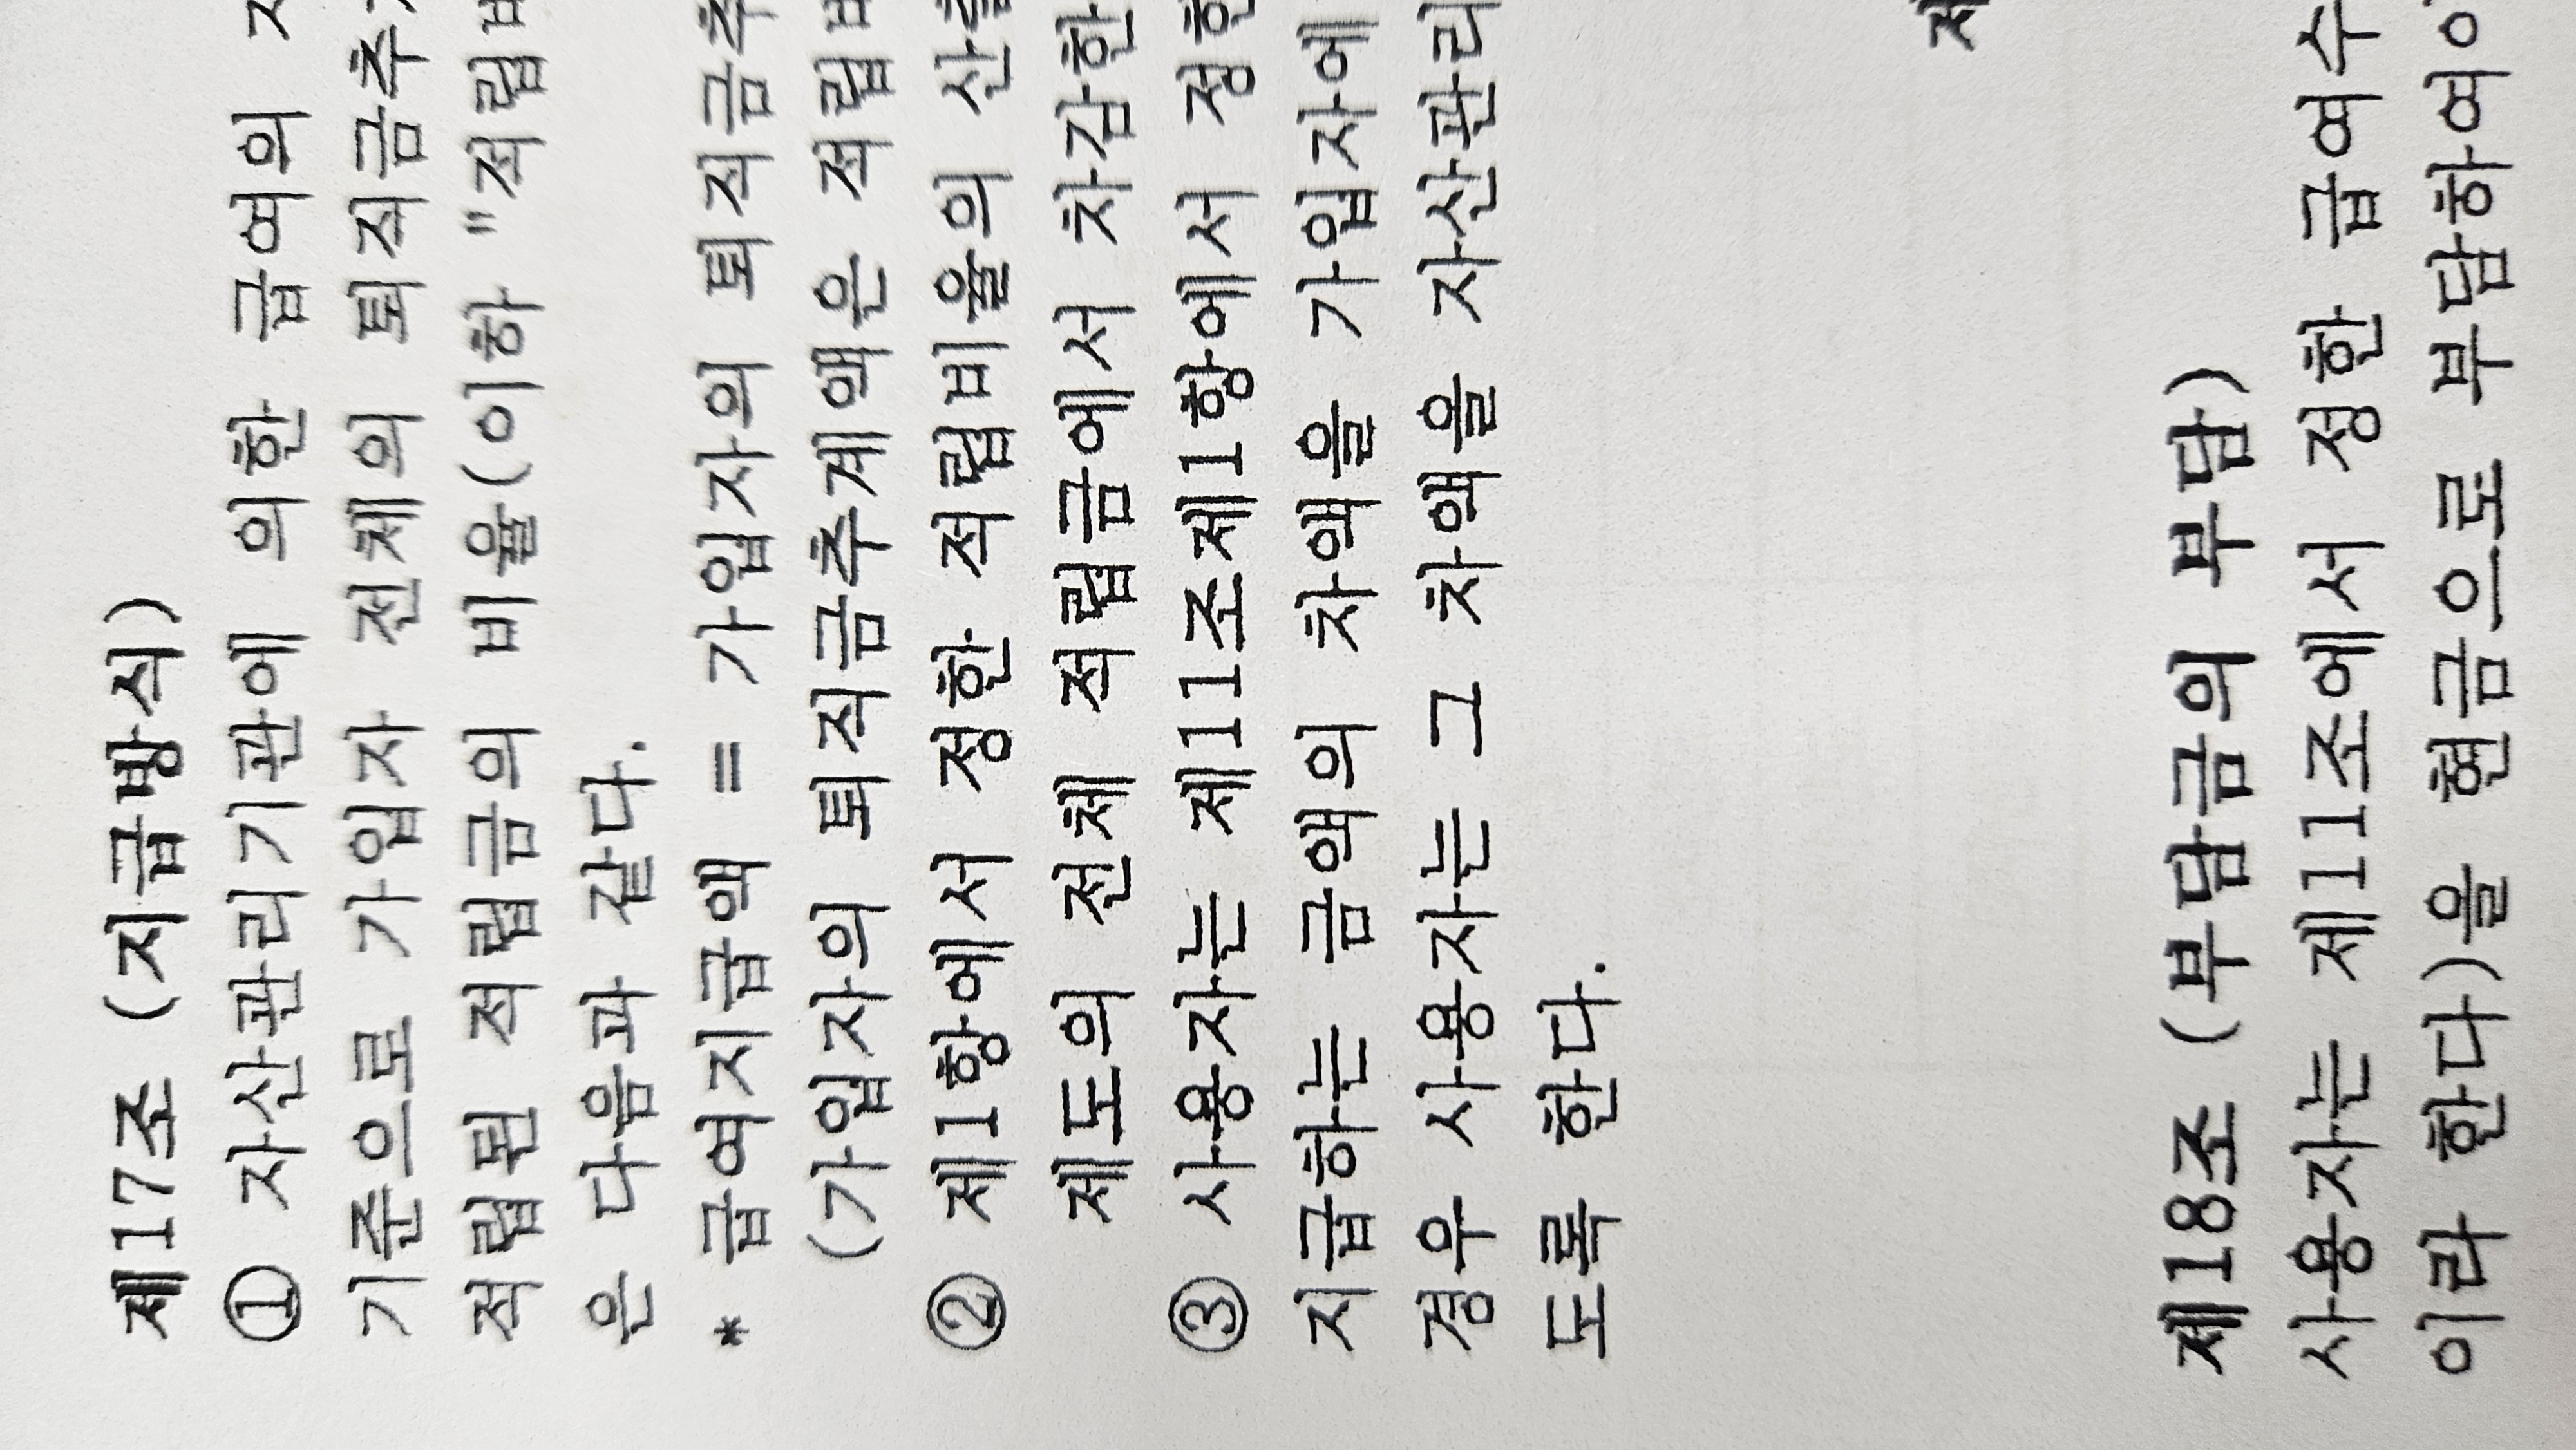 제17조 (지급방식)
① 자산관리기관에 의한 급여의
기준으로 가입자 전체의 퇴직금추
적립된 적립금의 비율(이하 "적립
은 다음과 같다.
* 급여지급액 = 가입자의 퇴직금추
(가입자의 퇴직금추계액은 적립
② 제1항에서 정한 적립비율의 산출
제도의 전체 적립금에서 차감한
③ 사용자는 제11조제1항에서 정한
지급하는 금액의 차액을 가입자에
경우 사용자는 그 차액을 자산관리
도록 한다.
제
제18조 (부담금의 부담)
사용자는 제11조에서 정한 급여수
이라 한다)을 현금으로 부담하여야